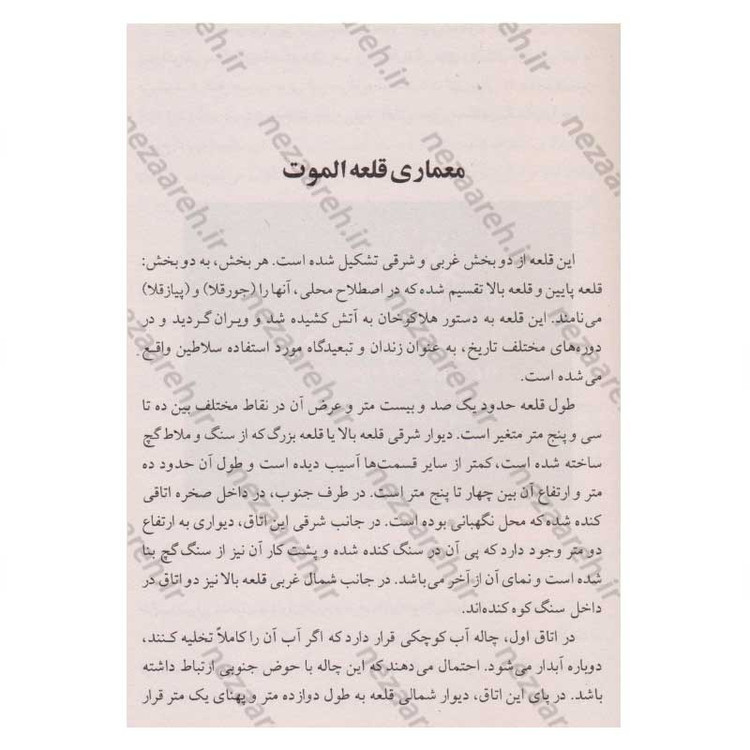 معماری قلعه الموت
این قلعه از دو بخش غربی و شرقی تشکیل شده است. هر بخش، به دو بخش:
قلعه پایین و قلعه بالا تقسیم شده که در اصطلاح محلی، آنها را (جورقلا) و (پیازقلا)
می‌نامند. این قلعه به دستور هلاکوخان به آتش کشیده شد و ویران گردید و در
دوره‌های مختلف تاریخ، به عنوان زندان و تبعیدگاه مورد استفاده سلاطین واقع
می‌شده است.
طول قلعه حدود یک صد و بیست متر و عرض آن در نقاط مختلف بین ده تا
سی و پنج متر متغیر است. دیوار شرقی قلعه بالا یا قلعه بزرگ که از سنگ و ملاط گچ
ساخته شده است، کمتر از سایر قسمت‌ها آسیب دیده است و طول آن حدود ده
متر و ارتفاع آن بین چهار تا پنج متر است. در طرف جنوب، در داخل صخره اتاقی
کنده شده که محل نگهبانی بوده است. در جانب شرقی این اتاق، دیواری به ارتفاع
دو متر وجود دارد که پی آن در سنگ کنده شده و پشت کار آن نیز از سنگ گچ بنا
شده است و نمای آن از آجر می‌باشد. در جانب شمال غربی قلعه بالا نیز دو اتاق در
داخل سنگ کوه کنده‌اند.
در اتاق اول، چاله آب کوچکی قرار دارد که اگر آب آن را کاملاً تخلیه کنند،
دوباره آبدار می‌شود. احتمال می‌دهند که این چاله با حوض جنوبی ارتباط داشته
باشد. در پای این اتاق، دیوار شمالی قلعه به طول دوازده متر و پهنای یک متر قرار
nezaareh.ir